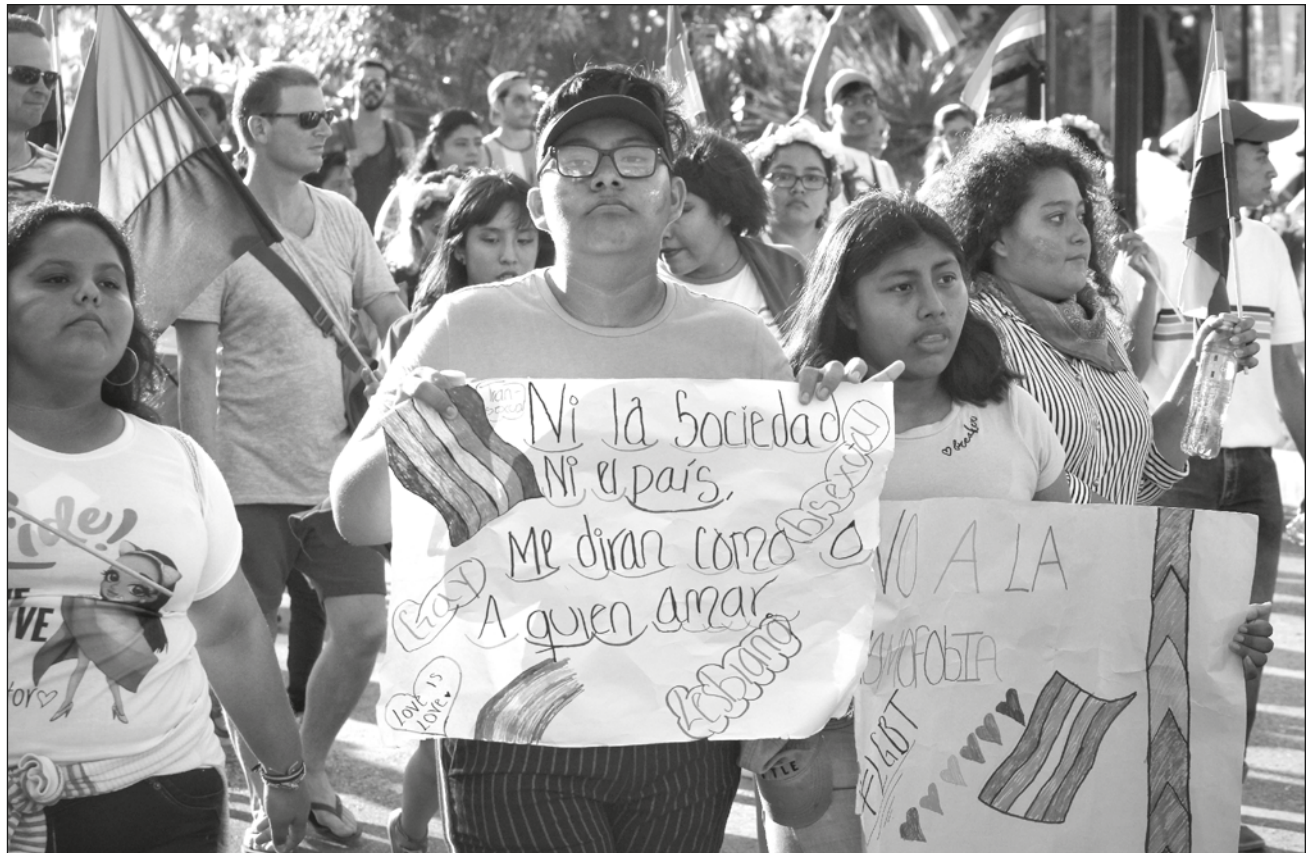 Ni la Sociedad
Ni el país,
Me diran como o
A quien amar
Bisexual
Gay
Lesbiana
Love is
Love
NO A LA
#LGBT